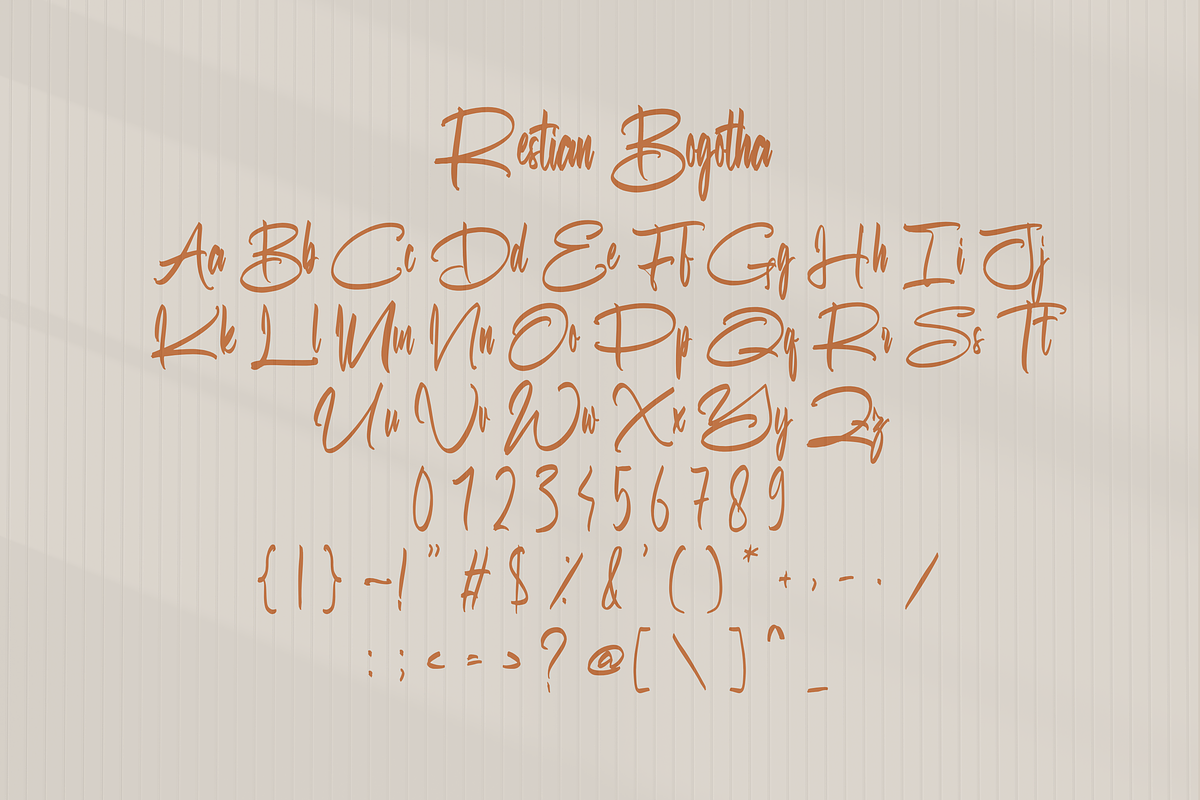 Restian Bogotha
Aa Bb Cc Dd Ee Ff Gg Hh Ii Jj
Kk Ll Mm Nn Oo Pp Qq Rr Ss Tt
Uu Vv Ww Xx Yy Zz
0 1 2 3 4 5 6 7 8 9
{ | } ~ ! " # $ % & ' ( ) * + , - . /
: ; < = > ? @ [ \ ] ^ _